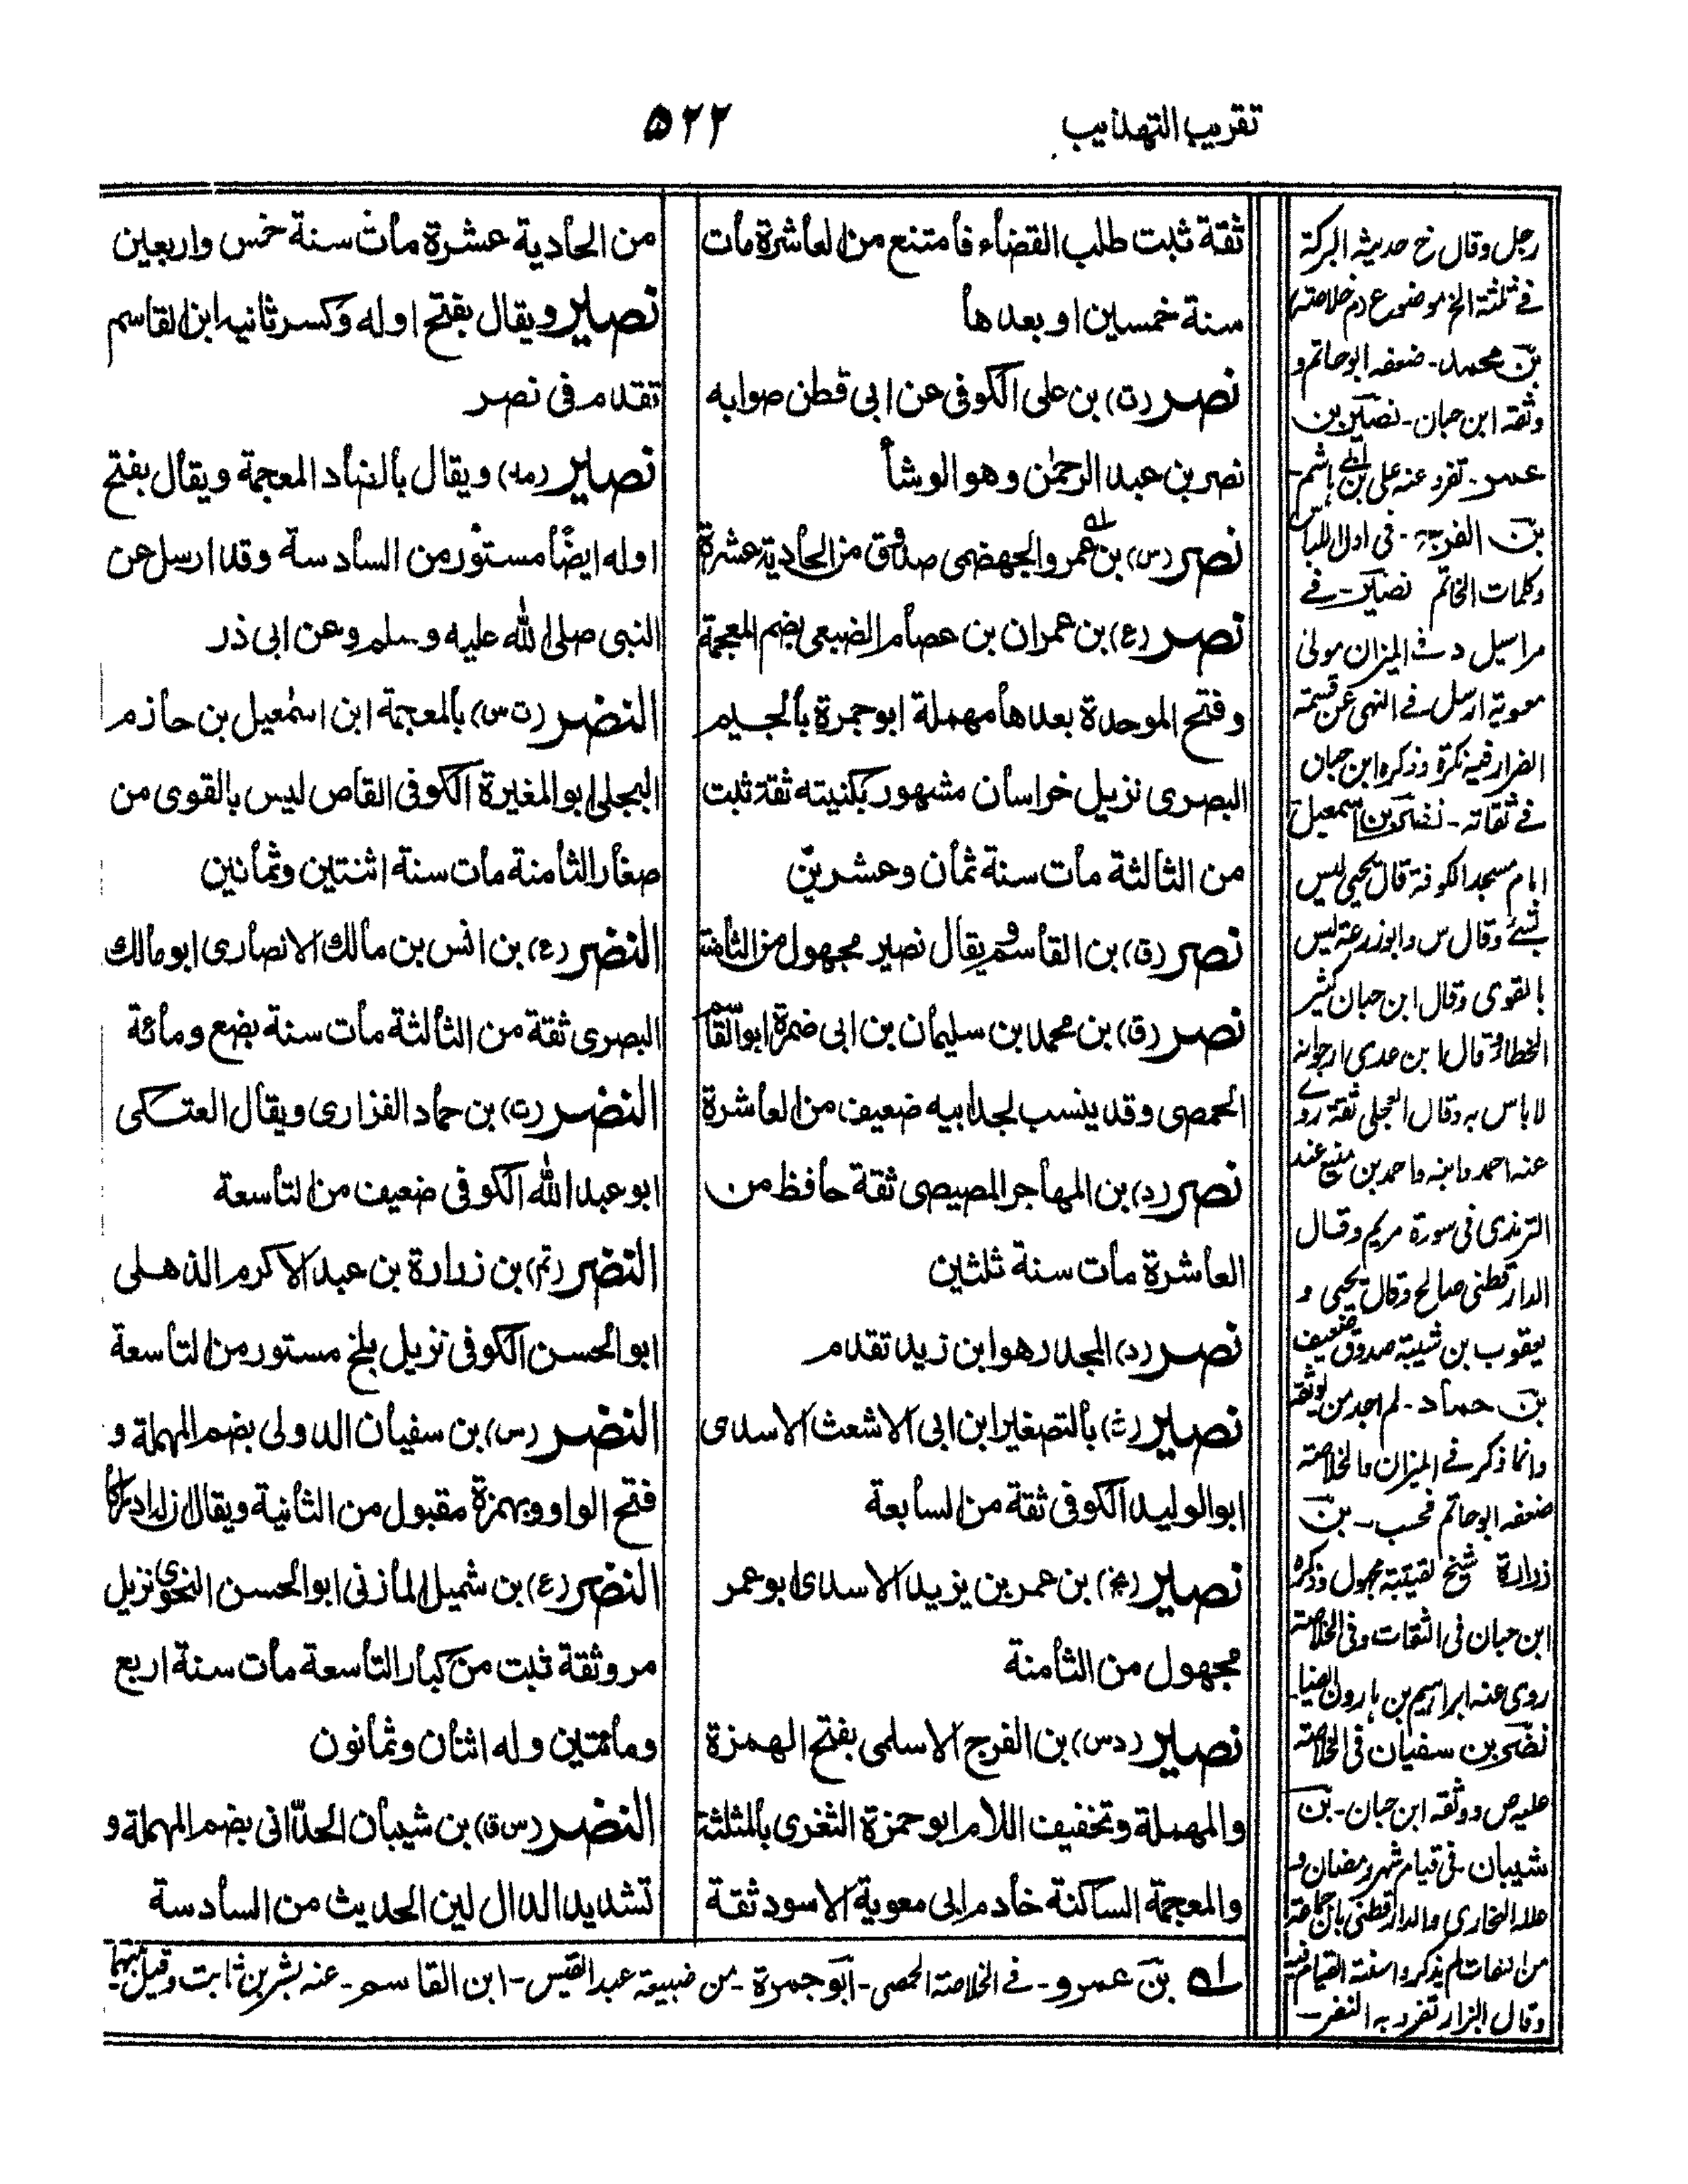 تقريب التهذيب
۵۲۲
ثقة ثبت طلب القضاء فامتنع من العاشرة مات
سنة خمسين او بعدها
نصر (ت) بن على الكوفى عن ابى قطن صوابه
نصر بن عبد الرحمٰن وهو الوشا
نصر (س) بن عمرو الجهضمى صدوق من الحادية عشرة
نصر (ع) بن عمران بن عصام الضبعى بضم المعجمة
وفتح الموحدة بعدها مهملة ابو جمرة بالجيم
البصرى نزيل خراسان مشهور بكنيته ثقة ثبت
من الثالثة مات سنة ثمان وعشرين
نصر (ق) بن القاسم ويقال نصير مجهول من الثامنة
نصر (ق) بن محمد بن سليمان بن ابى ضمرة ابو القاسم
الحمصى وقد ينسب لجد ابيه ضعيف من العاشرة
نصر (د) بن المهاجر المصيصى ثقة حافظ من
العاشرة مات سنة ثلثين
نصر (د) المجدر هو ابن زيد تقدم
نصير بالتصغير ابن ابى الاشعث الاسدى
ابو الوليد الكوفى ثقة من السابعة
نصير بن عمر بن يزيد الاسدى ابو عمر
مجهول من الثامنة
نصير (دس) بن الفرج الاسلمى بفتح الهمزة
والمهملة وتخفيف اللام ابو حمزة الثغرى بالمثلثة
والمعجمة الساكنة خادم ابى معوية الاسود ثقة
من الحادية عشرة مات سنة خمس واربعين
نصير ويقال بفتح اوله وكسر ثانيه ابن القاسم
تقدم فى نصر
نصير (مد) ويقال بالضاد المعجمة ويقال بفتح
اوله ايضًا مستور من السادسة وقد ارسل عن
النبى صلى الله عليه وسلم وعن ابى ذر
النضر (ت س) بالمعجمة ابن اسمٰعيل بن حازم
البجلى ابو المغيرة الكوفى القاص ليس بالقوى من
صغار الثامنة مات سنة اثنتين وثمانين
النضر (ع) بن انس بن مالك الانصارى ابو مالك
البصرى ثقة من الثالثة مات سنة بضع ومائة
النضر (ت) بن حماد الفزارى ويقال العتكى
ابو عبد الله الكوفى ضعيف من التاسعة
النضر (تم) بن زرارة بن عبد الاكرم الذهلى
ابو الحسن الكوفى نزيل بلخ مستور من التاسعة
النضر (س) بن سفيان الدولى بضم المهملة و
فتح الواو وبهمزة مقبول من الثانية ويقال
النضر (ع) بن شميل المازنى ابو الحسن النحوى نزيل
مرو ثقة ثبت من كبار التاسعة مات سنة اربع
ومائتين وله اثنان وثمانون
النضر (س ق) بن شيبان الحدّانى بضم المهملة و
تشديد الدال لين الحديث من السادسة
رجل وقال خ حديثه البركة
فى ثلثة الخ موضوع
بن محمد - ضعفه ابو حاتم و
وثقه ابن حبان - نصير بن
عمر - تفرد عنه على بن ابى هاشم -
بن الفرج - فى اول اللباس
وكلمات الخاتم نصير - فے
مراسيل د فى الميزان مولى
معوية ارسل فے النهى عن قسمة
الضرار فيه نكرة وذكره ابن حبان
فے ثقاته - نضر بن اسمعيل
امام مسجد الكوفة قال يحيى ليس
بشئ وقال س وابو زرعة ليس
بالقوى وقال ابن حبان كثير
الخطا وقال ابن عدى ارجو انه
لا باس به وقال العجلى ثقة روے
عنه احمد وابنه واحمد بن منيع عند
الترمذى فى سورة مريم وقال
الدارقطنى صالح وقال يحيى و
يعقوب بن شيبة صدوق ضعيف
بن حماد - لم اجد من يوثقه
وانما ذكر فے الميزان والخلاصة
ضعفه ابو حاتم فحسب - بن
زرارة شيخ لقتيبة مجهول وذكره
ابن حبان فى الثقات وفى الخلاصة
روى عنه ابراهيم بن هارون ايضا -
نضر بن سفيان فى الخلاصة
عليه ص ووثقه ابن حبان - بن
شيبان - فى قيام شهر رمضان و
علله البخارى والدارقطنى بان جماعة
من الثقات لم يذكروا سنة القيام فيه
وقال البزار تفرد به النضر -
له بن عمرو - فے الخلاصة الحمصى - ابو جمرة - من ضبيعة عبد القيس - ابن القاسم - عنه بشر بن ثابت وقيل